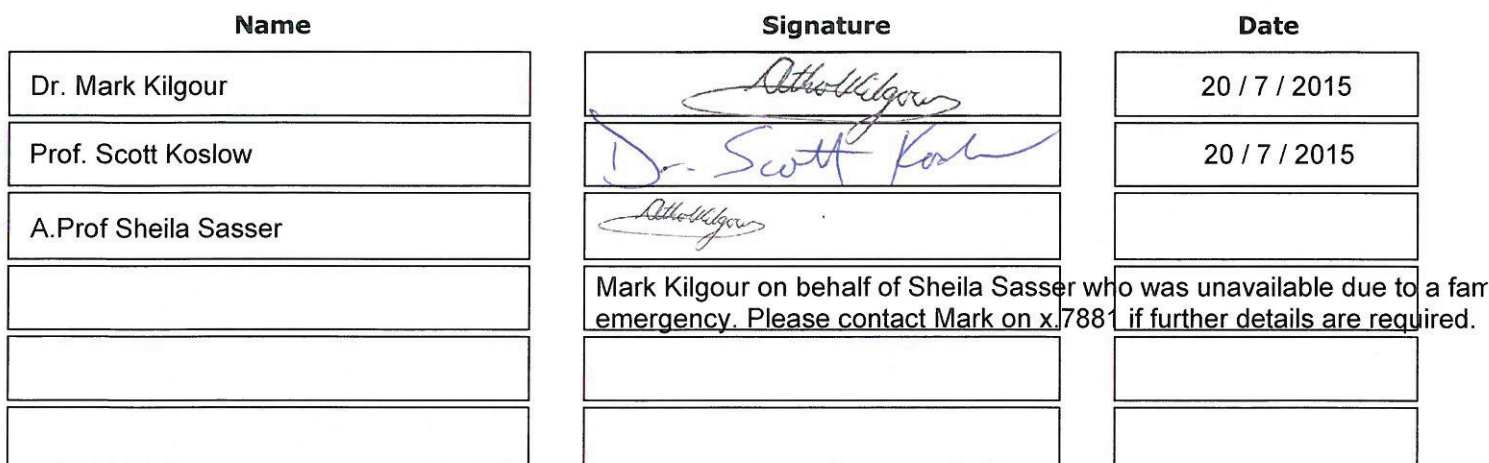 Name Signature Date
Dr. Mark Kilgour 20 / 7 / 2015
Prof. Scott Koslow Dr. Scott Koslow 20 / 7 / 2015
A.Prof Sheila Sasser
Mark Kilgour on behalf of Sheila Sasser who was unavailable due to a fam
emergency. Please contact Mark on x.7881 if further details are required.